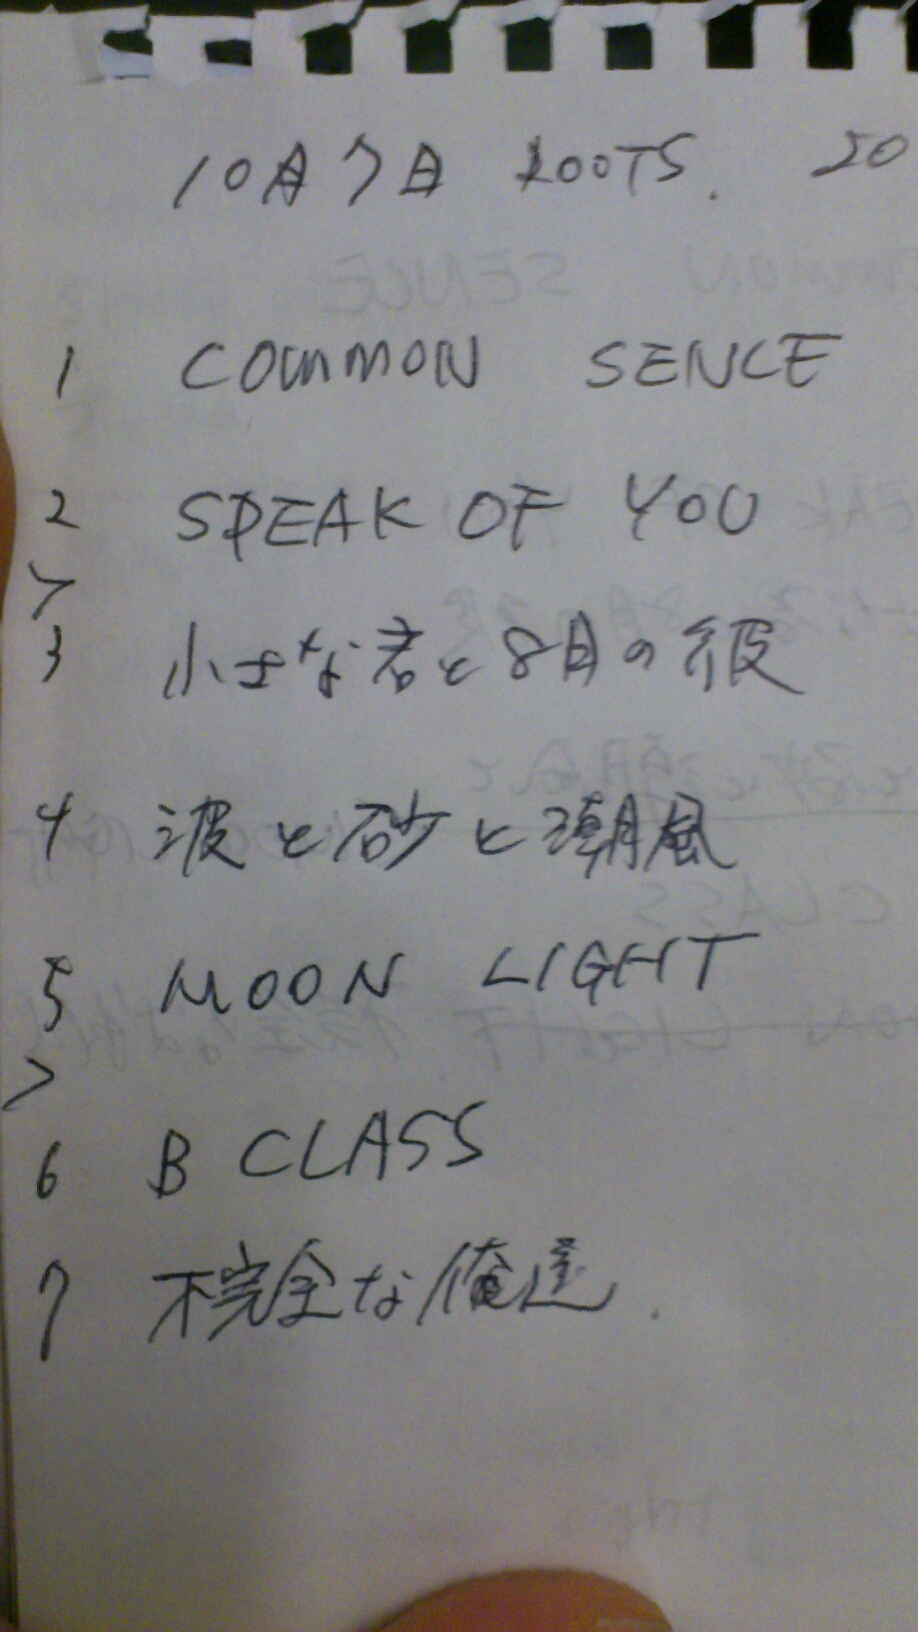 10月7日 ROOTS. 20
1 COMMON SENCE
2 SPEAK OF YOU
>
3 小さな君と8月の彼
4 波と砂と潮風
5 MOON LIGHT
>
6 B CLASS
7 不完全な俺達.